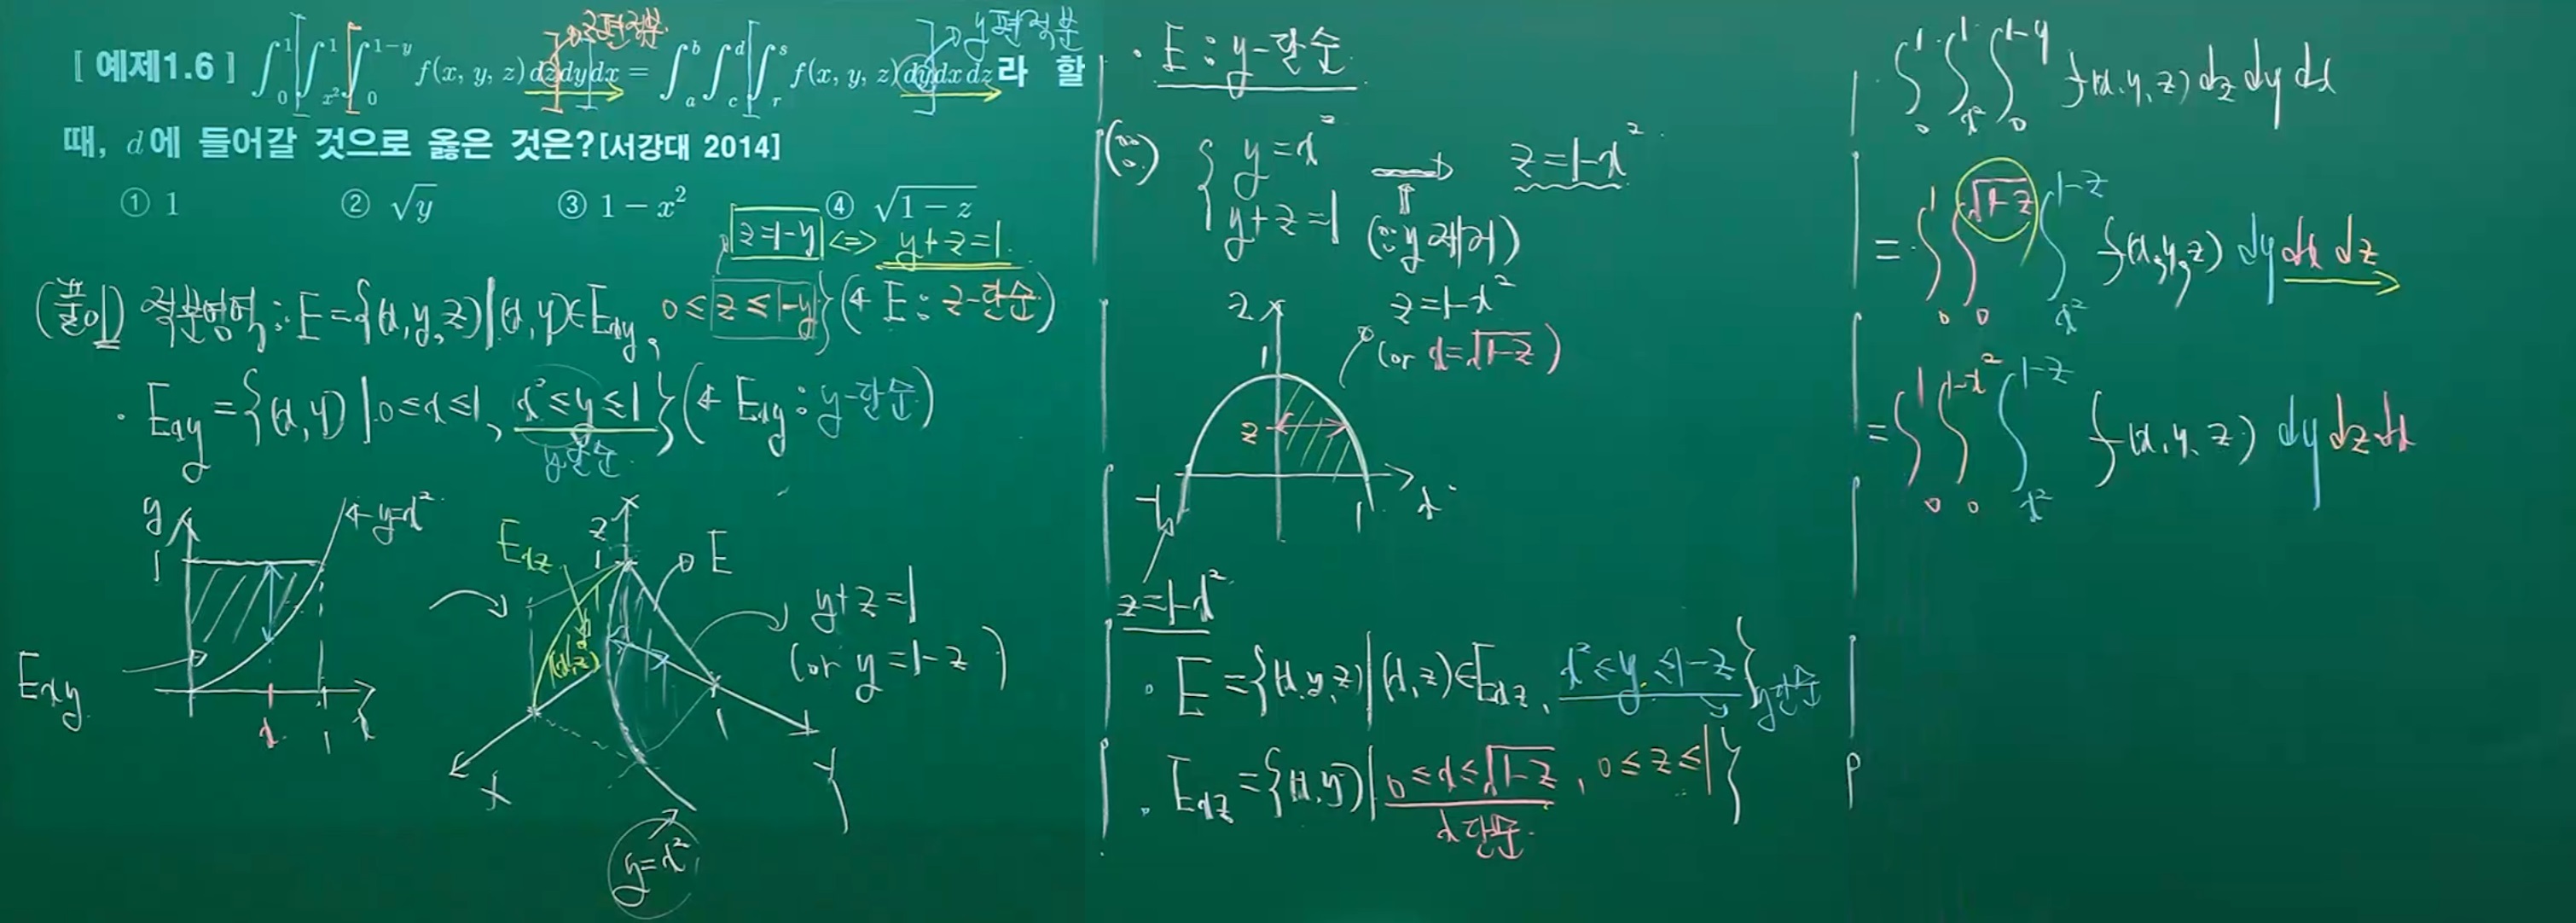 [ 예제1.6 ] ∫₀¹ ∫_{x²}¹ ∫₀^{1-y} f(x, y, z) dz dy dx = ∫_a^b ∫_c^d ∫_r^s f(x, y, z) dy dx dz 라 할
z편적분
y편적분
때, d에 들어갈 것으로 옳은 것은?[서강대 2014]
① 1 ② √y ③ 1 − x² ④ √(1 − z)
z=1-y <=> y+z=1.
(풀이) 적분영역: E={(x,y,z)|(x,y)∈Exy, 0≤z≤1-y} (← E: z-단순)
· Exy={(x,y)|0≤x≤1, x²≤y≤1} (← Exy: y-단순)
y단순.
y
1
← y=x²
Exy
x
1
x
Exz
z
1
E
(x,z)
y+z=1
(or y=1-z)
1
x
y
y=x²
· E: y-단순
(∵) { y=x² y+z=1 ⇒ z=1-x².
(∵ y제거)
z
z=1-x²
(or x=√(1-z))
1
z
-1
1
x
z=1-x²
· E={(x,y,z)|(x,z)∈Exz, x²≤y≤1-z} y단순
· Exz={(x,y)|0≤x≤√(1-z), 0≤z≤1}
x단순.
· ∫₀¹ ∫_{x²}¹ ∫₀^{1-y} f(x,y,z) dz dy dx
= ∫₀¹ ∫₀^{√(1-z)} ∫_{x²}^{1-z} f(x,y,z) dy dx dz
= ∫₀¹ ∫₀^{1-x²} ∫_{x²}^{1-z} f(x,y,z) dy dz dx